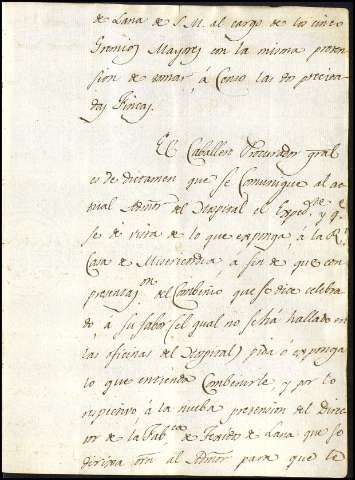 de Lana de S.M. al cargo de los cinco
Gremios Mayores con la misma preten
sion de tomar, á Censo las dos precita
das Fincas.
El Caballero Procurador gral
es de dictamen que se Comunique al ac
tual Admor del Hospital el Exped.te y q.e
se dé vista de lo que exponga á la R.l
Casa de Misericordia, á fin de que con
presentaz.on del Combenio que se dice celebra
do, á su fabor (el qual no se há hallado en
las oficinas del Hospital) pida ó exponga
lo que entienda Combenirle, y por lo
respectivo, á la nueba pretension del Direc
tor de la Fab.ca de Texido de Lana que se
dirixa orn al Admor para que le